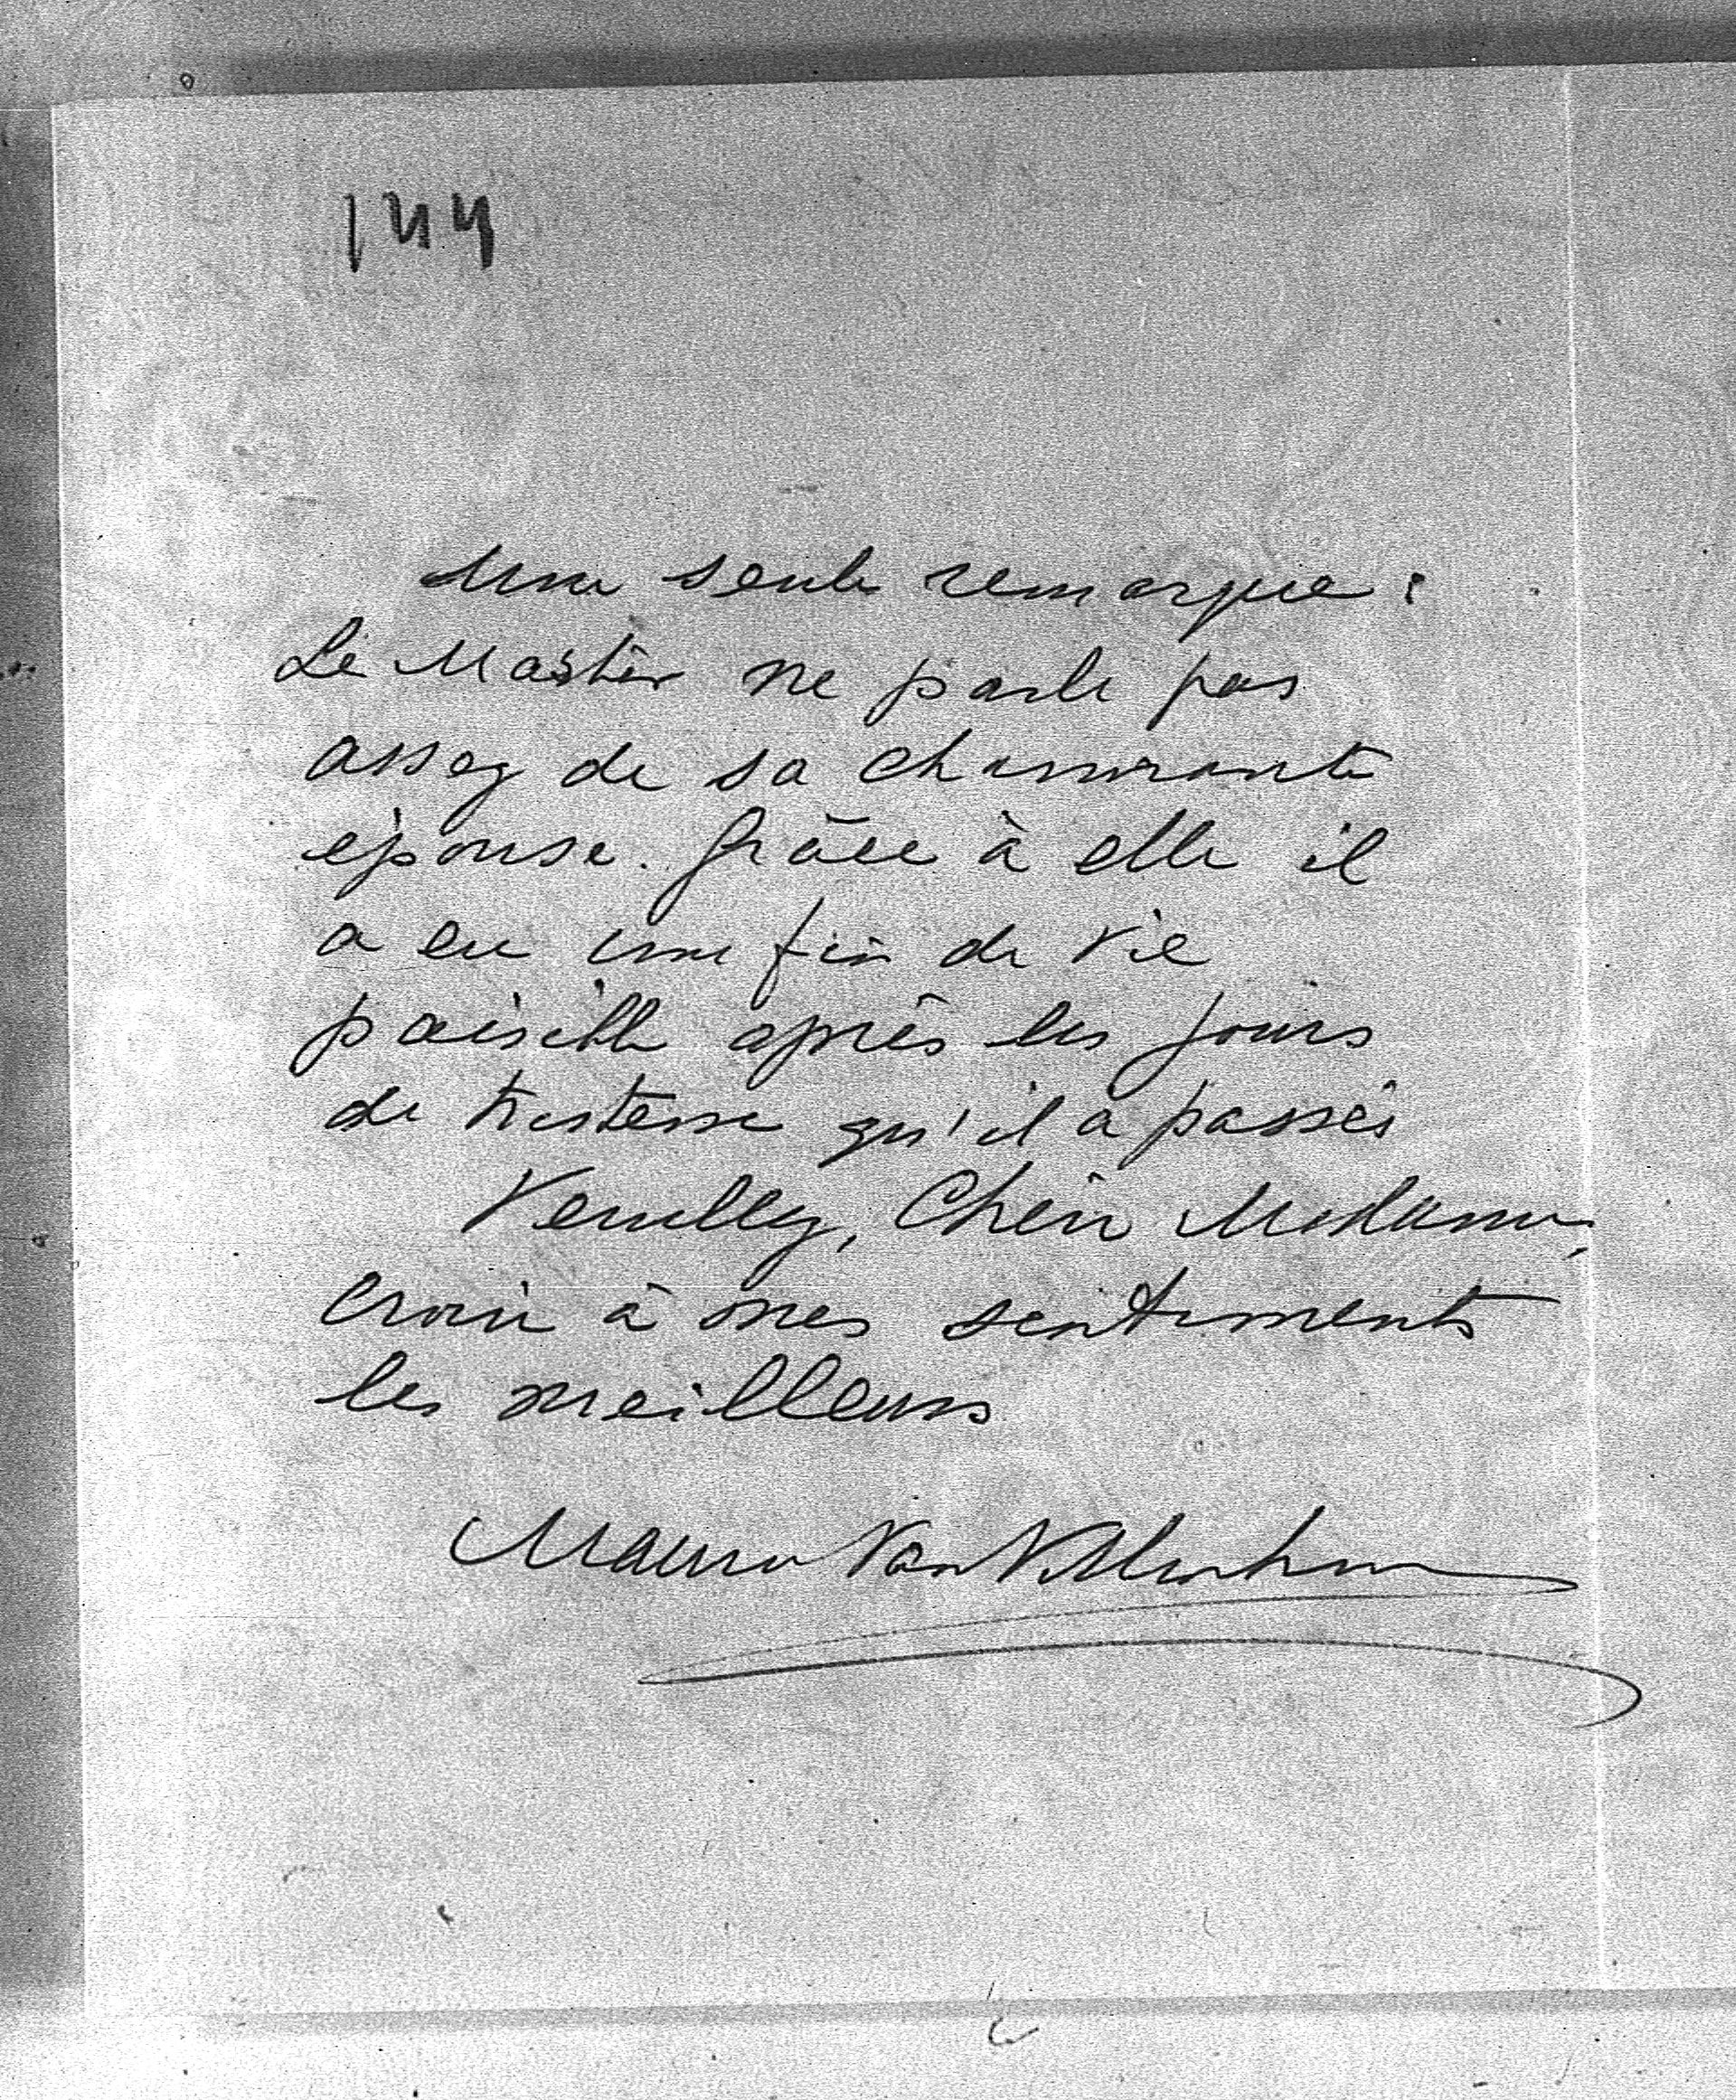 144
Une seule remarque :
Le Master ne parle pas
assez de sa charmante
épouse. Grâce à elle il
a eu une fin de vie
paisible après les jours
de tristesse qu'il a passés
Veuillez, Chère Madame,
croire à mes sentiments
les meilleurs
Van